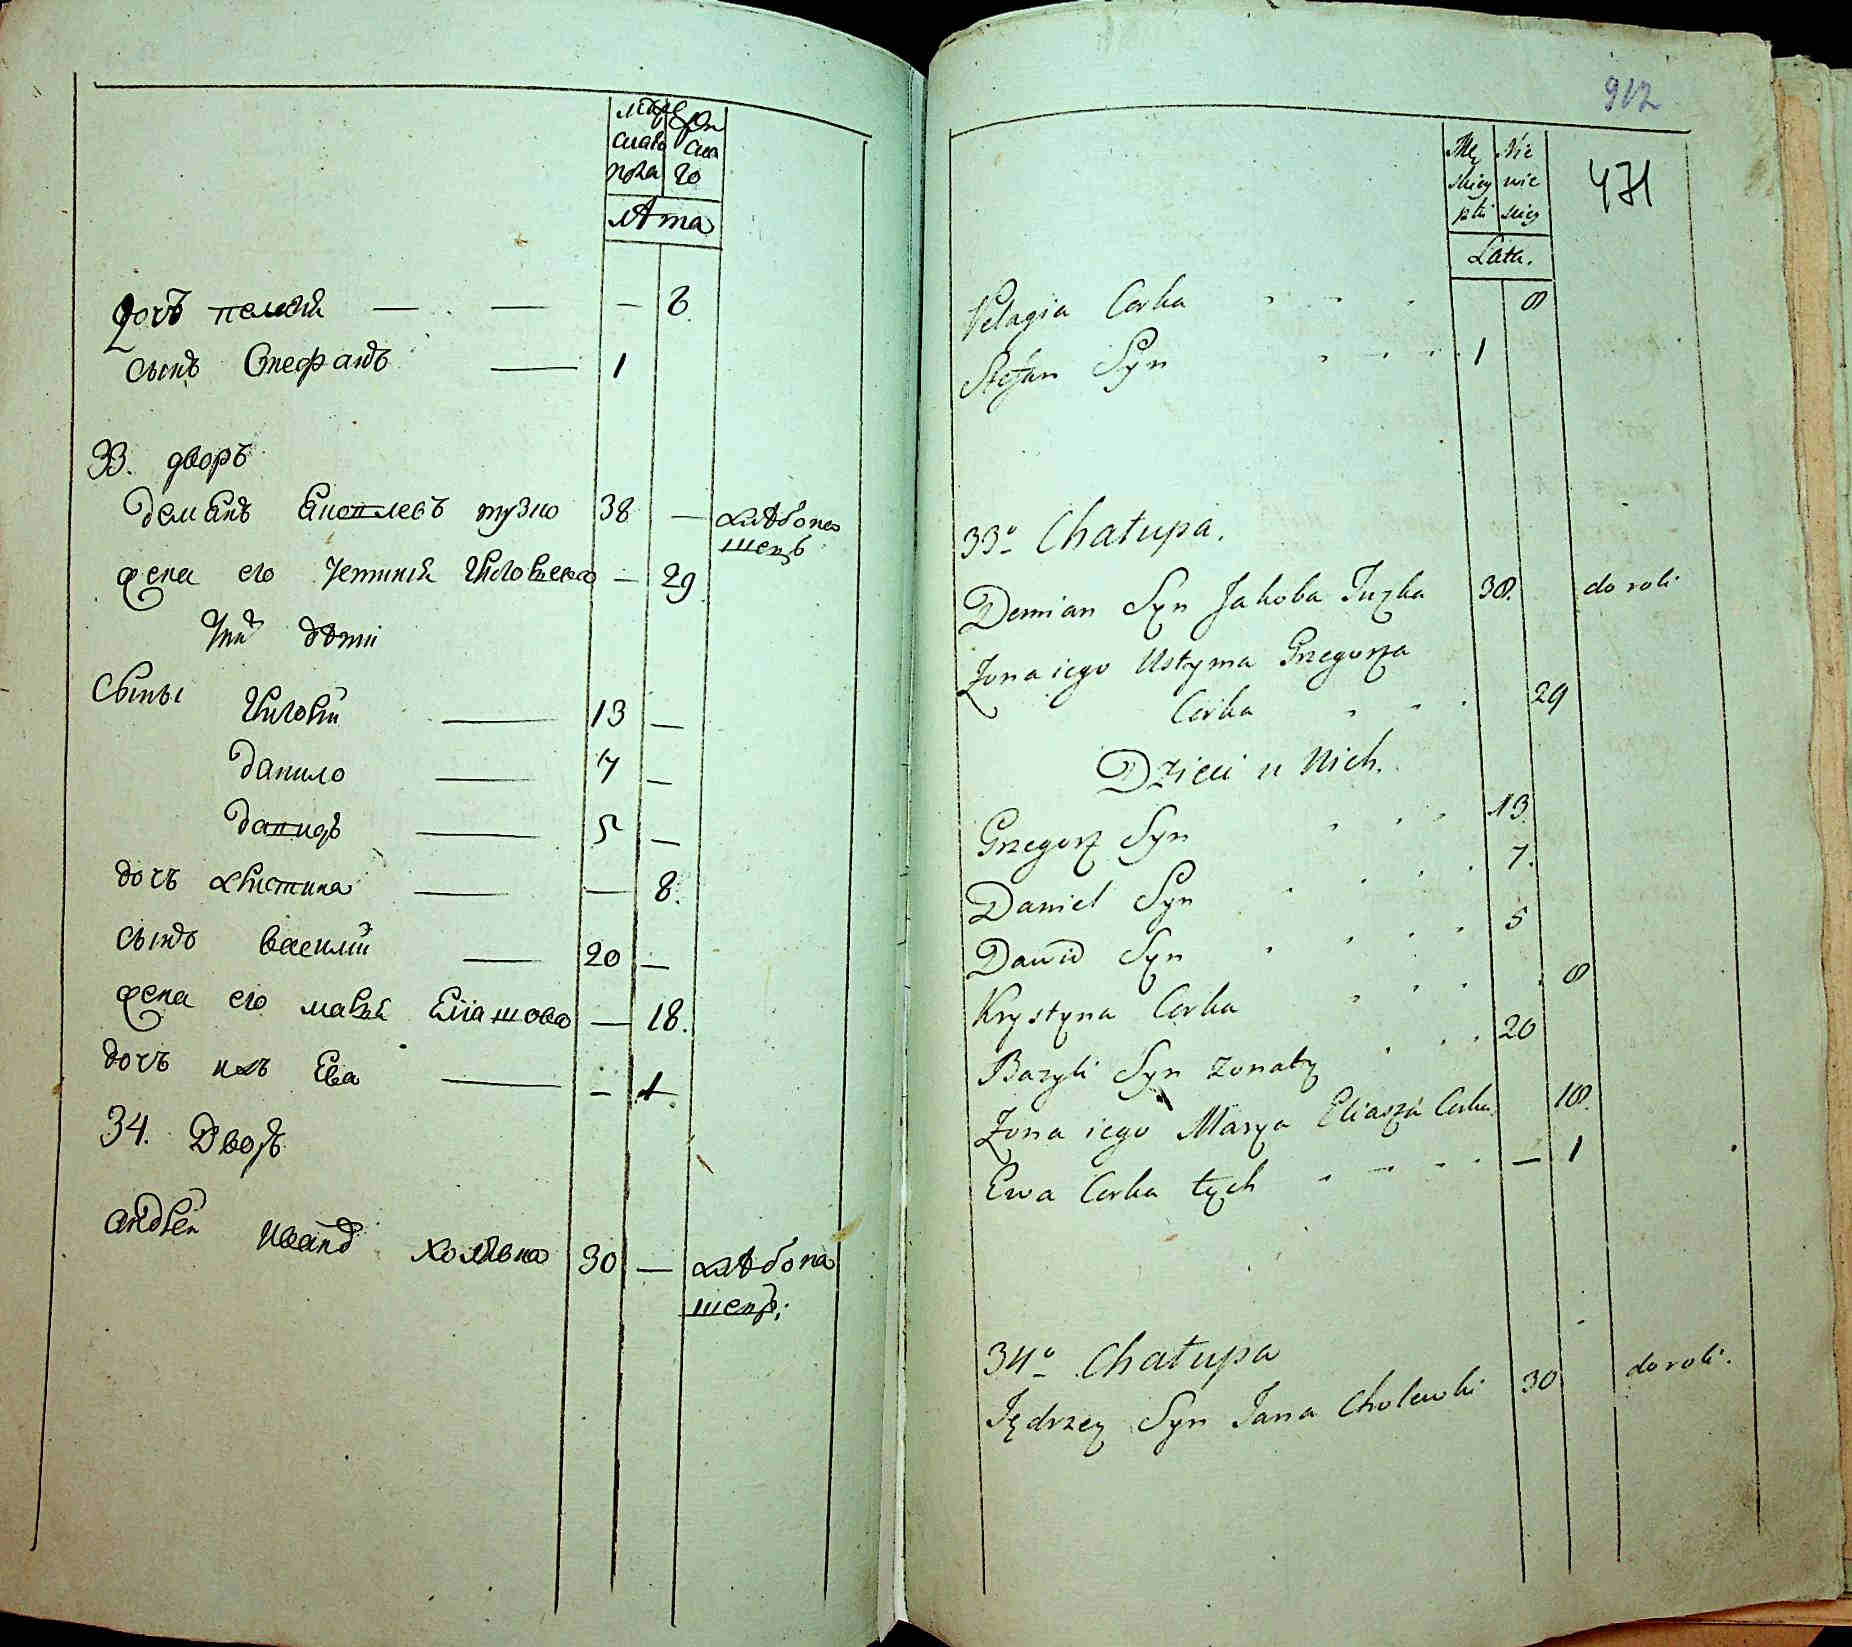 мужеска пола
женскаго
лѣта
дочь пелагiя — — — 8.
сынъ Стефанъ — 1
33. дворъ
демянъ Яковлевъ тузко 38 — хлѣбопа
шецъ
жена его Устинiя Григориева — 29
Ихъ дѣти
Сыны Григорiй — 13 —
данило — 7 —
давидъ — 5 —
дочь христина — — 8.
сынъ василiй — 20 —
жена его марiя Елiашова — 18.
дочь ихъ Ева — — 1.
34. Дворъ
андрей Иванъ Холѣвка 30 — хлѣбопа
шецъ;
912
471
Mę
skiey
płci
Nie
wie
skiey
Lata.
Pelagia Corka 8
Stefan Syn 1
33o Chałupa.
Demian Syn Jakoba Tuzka 38. do roli
Zona iego Ustyma Grzegorza
Corka 29
Dzieci u Nich.
Grzegorz Syn 13.
Daniel Syn 7.
Dawid Syn 5
Krystyna Corka 8
Bazyli Syn zonaty 20
Zona iego Marya Eliasza Corka 18.
Ewa Corka tych — 1
34o Chałupa
Jędrzey Syn Jana Cholewki 30 do roli.